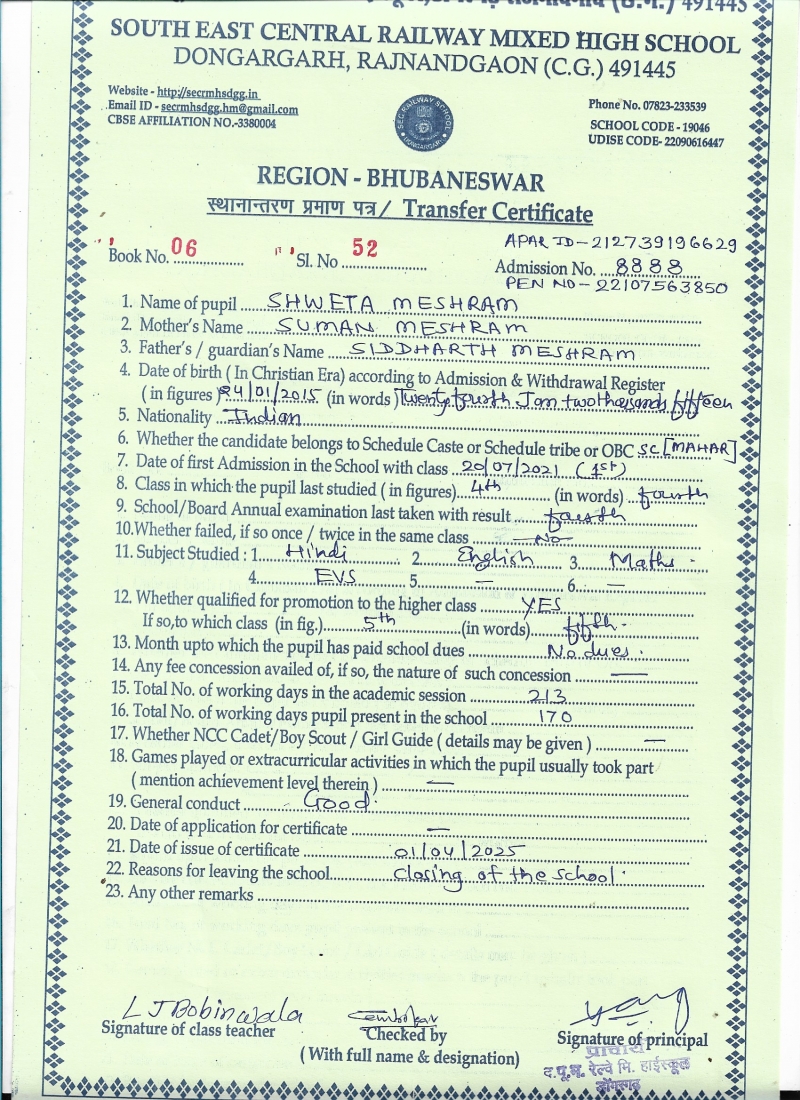 (छ.ग.) 491445
SOUTH EAST CENTRAL RAILWAY MIXED HIGH SCHOOL
DONGARGARH, RAJNANDGAON (C.G.) 491445
Website - http://secrmhsdgg.in
Email ID - secrmhsdgg.hm@gmail.com
CBSE AFFILIATION NO.-3380004
Phone No. 07823-233539
SCHOOL CODE - 19046
UDISE CODE- 22090616447
SEC RAILWAY SCHOOL
DONGARGARH
REGION - BHUBANESWAR
स्थानान्तरण प्रमाण पत्र / Transfer Certificate
APAR ID - 212739196629
Book No. 06 Sl. No 52 Admission No. 8888
PEN NO - 22107563850
1. Name of pupil SHWETA MESHRAM
2. Mother's Name SUMAN MESHRAM
3. Father's / guardian's Name SIDDHARTH MESHRAM
4. Date of birth ( In Christian Era) according to Admission & Withdrawal Register
(in figures) 24/01/2015 (in words) Twenty fourth Jan two thousands fifteen
5. Nationality Indian
6. Whether the candidate belongs to Schedule Caste or Schedule tribe or OBC SC [MAHAR]
7. Date of first Admission in the School with class 20/07/2021 (1st)
8. Class in which the pupil last studied ( in figures) 4th (in words) fourth
9. School/Board Annual examination last taken with result fourth
10. Whether failed, if so once / twice in the same class — No —
11. Subject Studied : 1. Hindi 2. English 3. Maths .
4. EVS 5. — 6. —
12. Whether qualified for promotion to the higher class YES
If so,to which class (in fig.) 5th (in words) fifth .
13. Month upto which the pupil has paid school dues No dues .
14. Any fee concession availed of, if so, the nature of such concession —
15. Total No. of working days in the academic session 213
16. Total No. of working days pupil present in the school 170
17. Whether NCC Cadet/Boy Scout / Girl Guide ( details may be given ) —
18. Games played or extracurricular activities in which the pupil usually took part
( mention achievement level therein ) —
19. General conduct Good .
20. Date of application for certificate —
21. Date of issue of certificate 01/04/2025
22. Reasons for leaving the school closing of the school .
23. Any other remarks
L J Bobinwala
Signature of class teacher Checked by Signature of principal
( With full name & designation)
प्राचार्य
द.पू.म. रेल्वे मि. हाईस्कूल
डोंगरगढ़